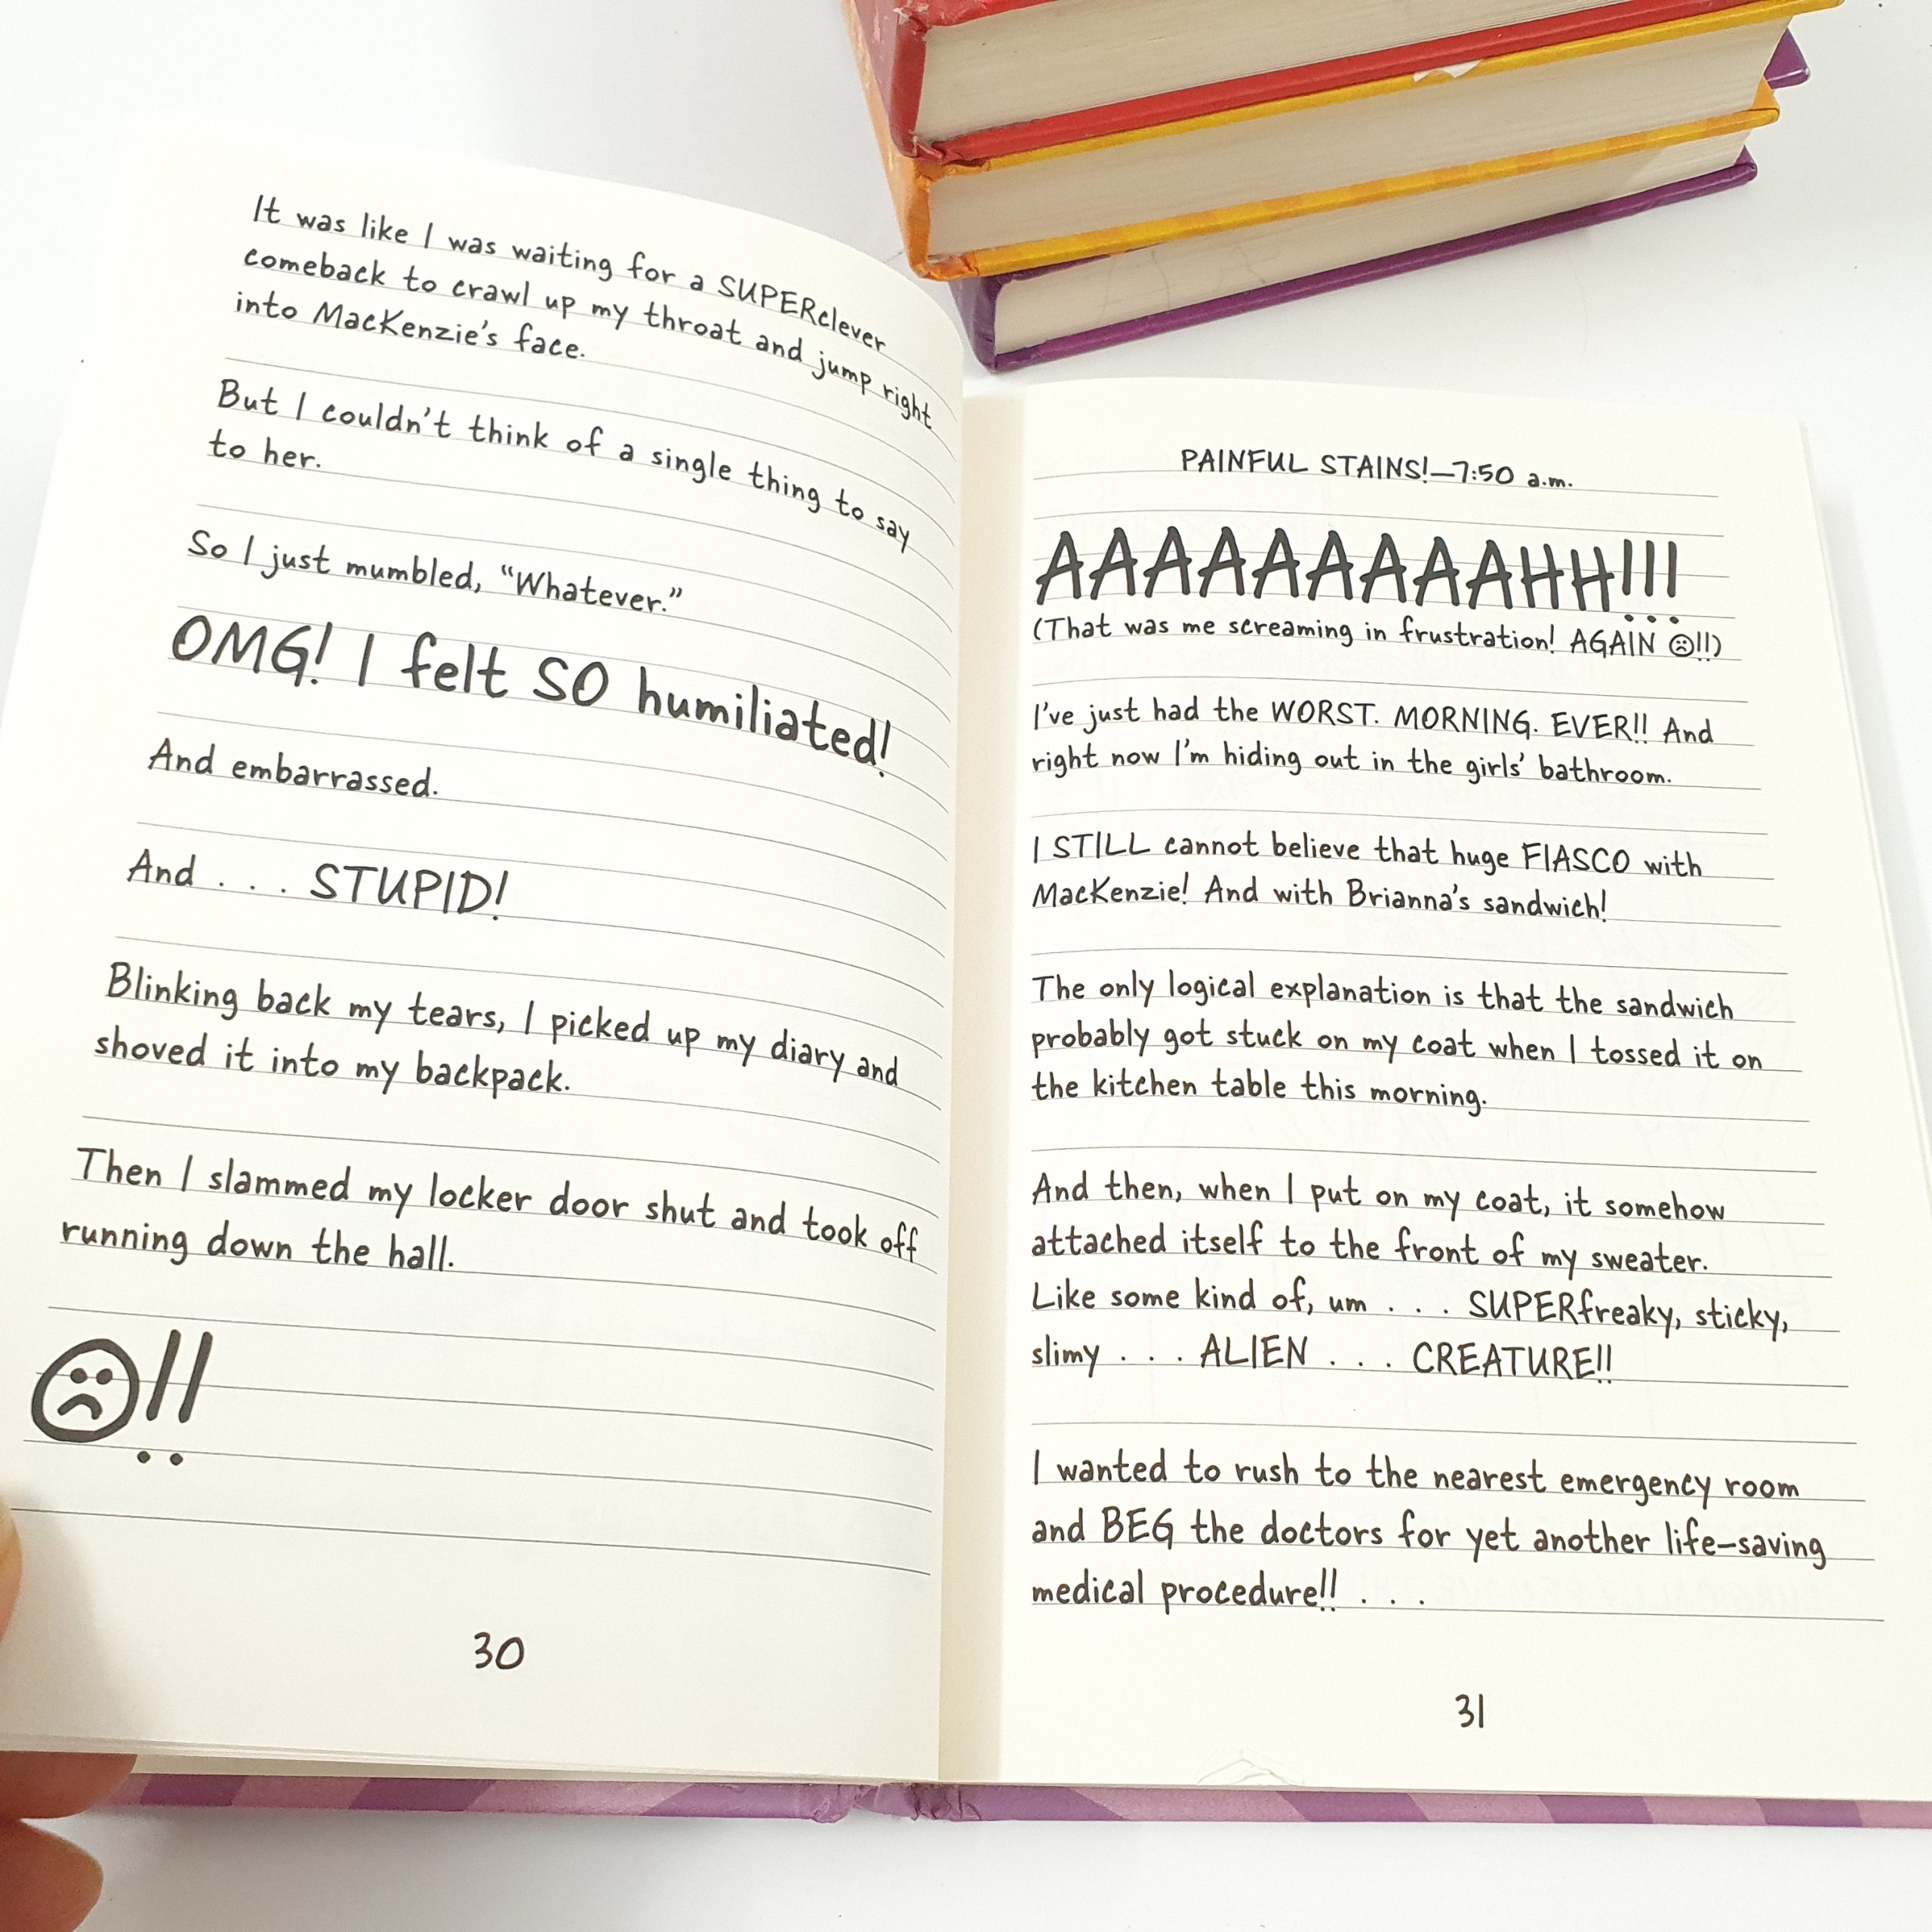 It was like I was waiting for a SUPERclever
comeback to crawl up my throat and jump right
into MacKenzie's face.
But I couldn't think of a single thing to say
to her.
So I just mumbled, “Whatever.”
OMG! I felt SO humiliated!
And embarrassed.
And . . . STUPID!
Blinking back my tears, I picked up my diary and
shoved it into my backpack.
Then I slammed my locker door shut and took off
running down the hall.
☹!!
30
PAINFUL STAINS!—7:50 a.m.
AAAAAAAAAHH!!!
(That was me screaming in frustration! AGAIN ☹!!)
I've just had the WORST. MORNING. EVER!! And
right now I'm hiding out in the girls' bathroom.
I STILL cannot believe that huge FIASCO with
MacKenzie! And with Brianna's sandwich!
The only logical explanation is that the sandwich
probably got stuck on my coat when I tossed it on
the kitchen table this morning.
And then, when I put on my coat, it somehow
attached itself to the front of my sweater.
Like some kind of, um . . . SUPERfreaky, sticky,
slimy . . . ALIEN . . . CREATURE!!
I wanted to rush to the nearest emergency room
and BEG the doctors for yet another life-saving
medical procedure!! . . .
31